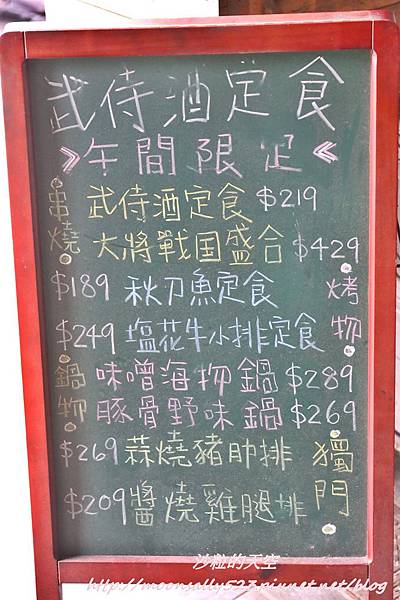 武侍酒定食
》午間限定《
串燒 武侍酒定食 $219
大將戰国盛合 $429
$189 秋刀魚定食 烤物
$249 塩花牛小排定食
鍋物 味噌海物鍋 $289
豚骨野味鍋 $269
$269 蒜燒豬肋排 獨門
$209 醬燒雞腿排
沙粒的天空
http://moonsally523.pixnet.net/blog